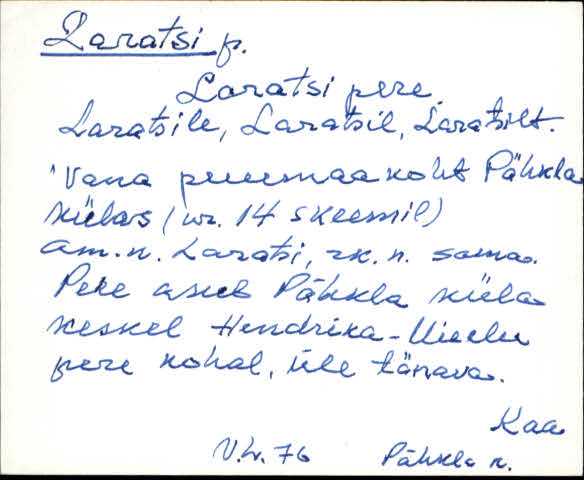 Laratsi p.
Laratsi pere.
Laratsile, Laratsil, Laratsilt.
'Vana peremaakoht Pähkla
külas (nr. 14 skeemil)
am.n. Laratsi, rk. n. sama.
Pere asub Pähkla küla
keskel Hendrika-Uielu
pere kohal, üle tänava.
Kaa
V.L. 76 Pähkla k.